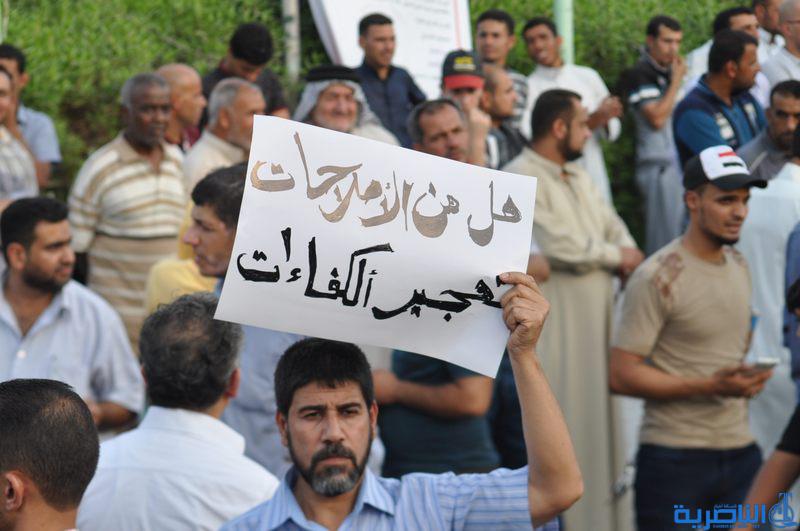 هل من الأصلاحات
تهجير ألكفاءات
الناصرية